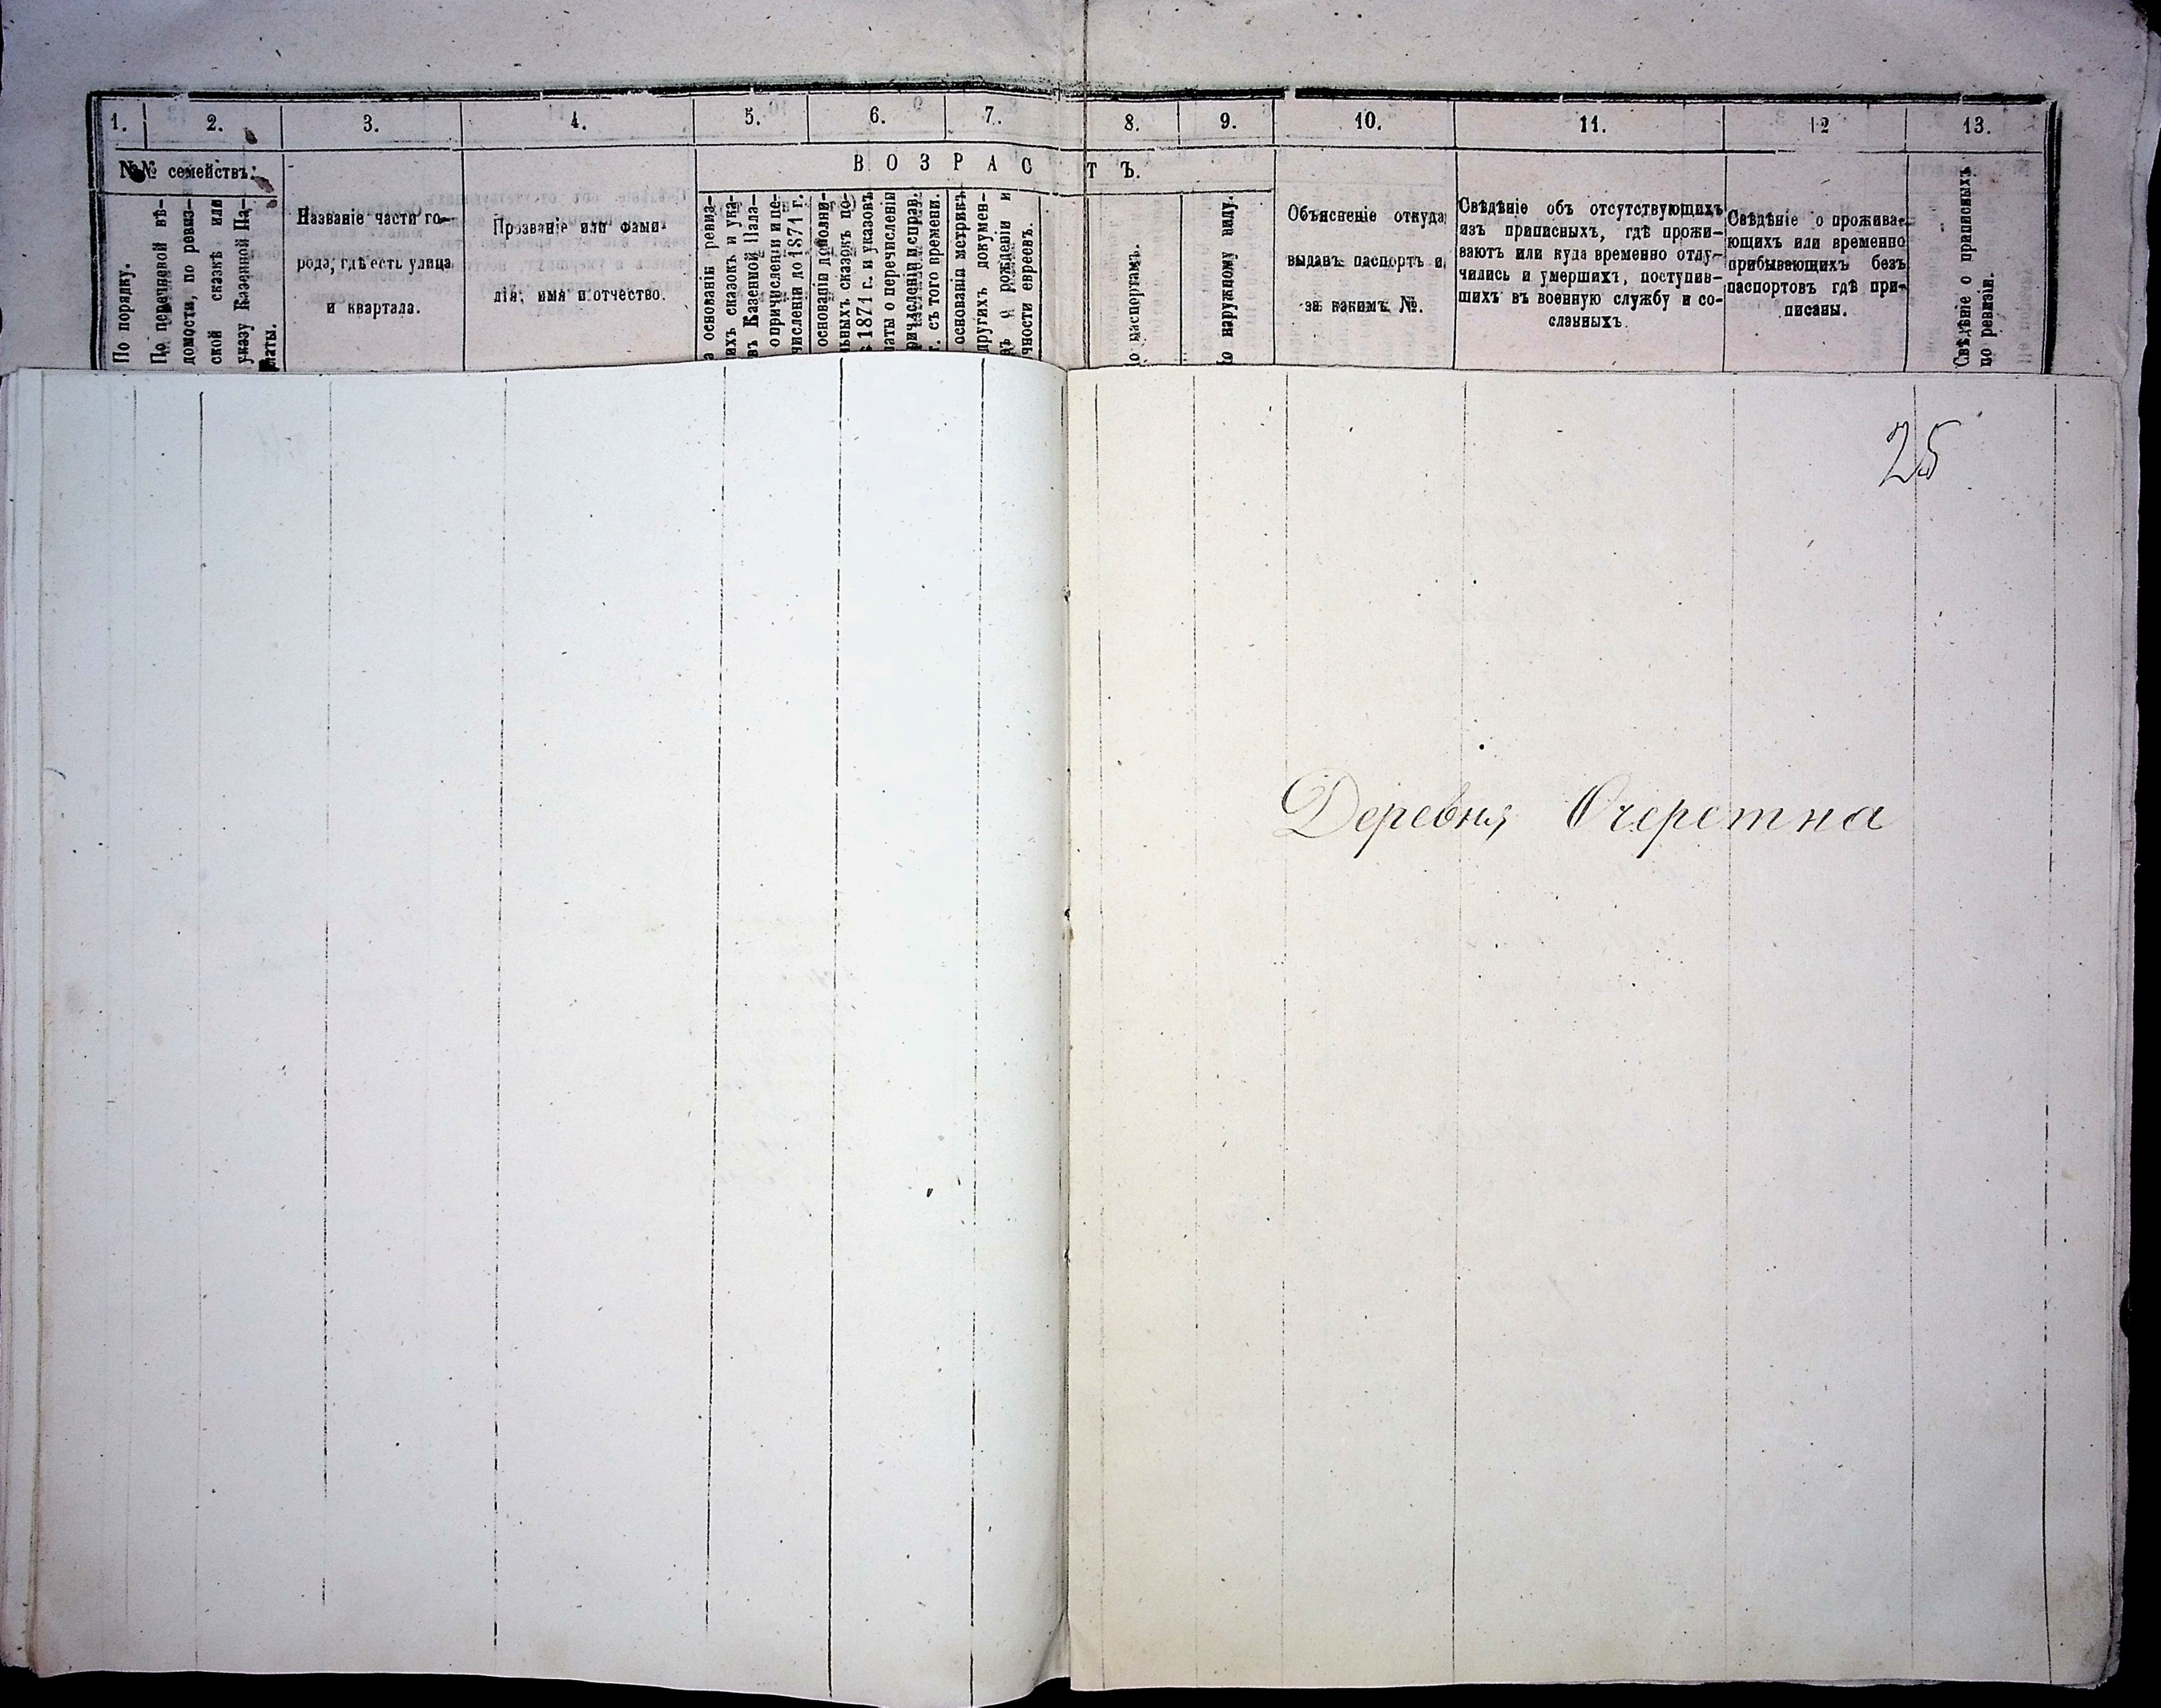 1. 2. 3. 4. 5. 6. 7. 8. 9. 10. 11. 12 13.
№№ семействъ.
ВОЗРАСТЪ.
По порядку.
По перечневой вѣ-
домости, по ревиз-
ской сказкѣ или
указу Казенной Па-
латы.
Названіе части го-
рода, гдѣ есть улица
и квартала.
Прозваніе или фами-
лія, имя и отчество.
основаніи ревиз-
ихъ сказокъ и ука-
въ Казенной Пала-
о причисленіи и пе-
численіи до 1871 г.
основаніи дополни-
ьныхъ сказокъ по-
1871 г. и указовъ
латы о перечисленіи
ричисленіи и справ.
г. съ того времени.
основаніи метрикъ
другихъ докумен-
ъ о рожденіи и
чности евреевъ.
о паспортамъ.
о наружному виду.
Объясненіе откуда
выданъ паспортъ и
за какимъ №.
Свѣдѣніе объ отсутствующихъ
изъ приписныхъ, гдѣ прожи-
ваютъ или куда временно отлу-
чились и умершихъ, поступив-
шихъ въ военную службу и со-
сланныхъ.
Свѣдѣніе о прожива-
ющихъ или временно
прибывающихъ безъ
паспортовъ гдѣ при-
писаны.
Свѣдѣніе о приписныхъ
по ревизіи.
25
Деревня Очеретна